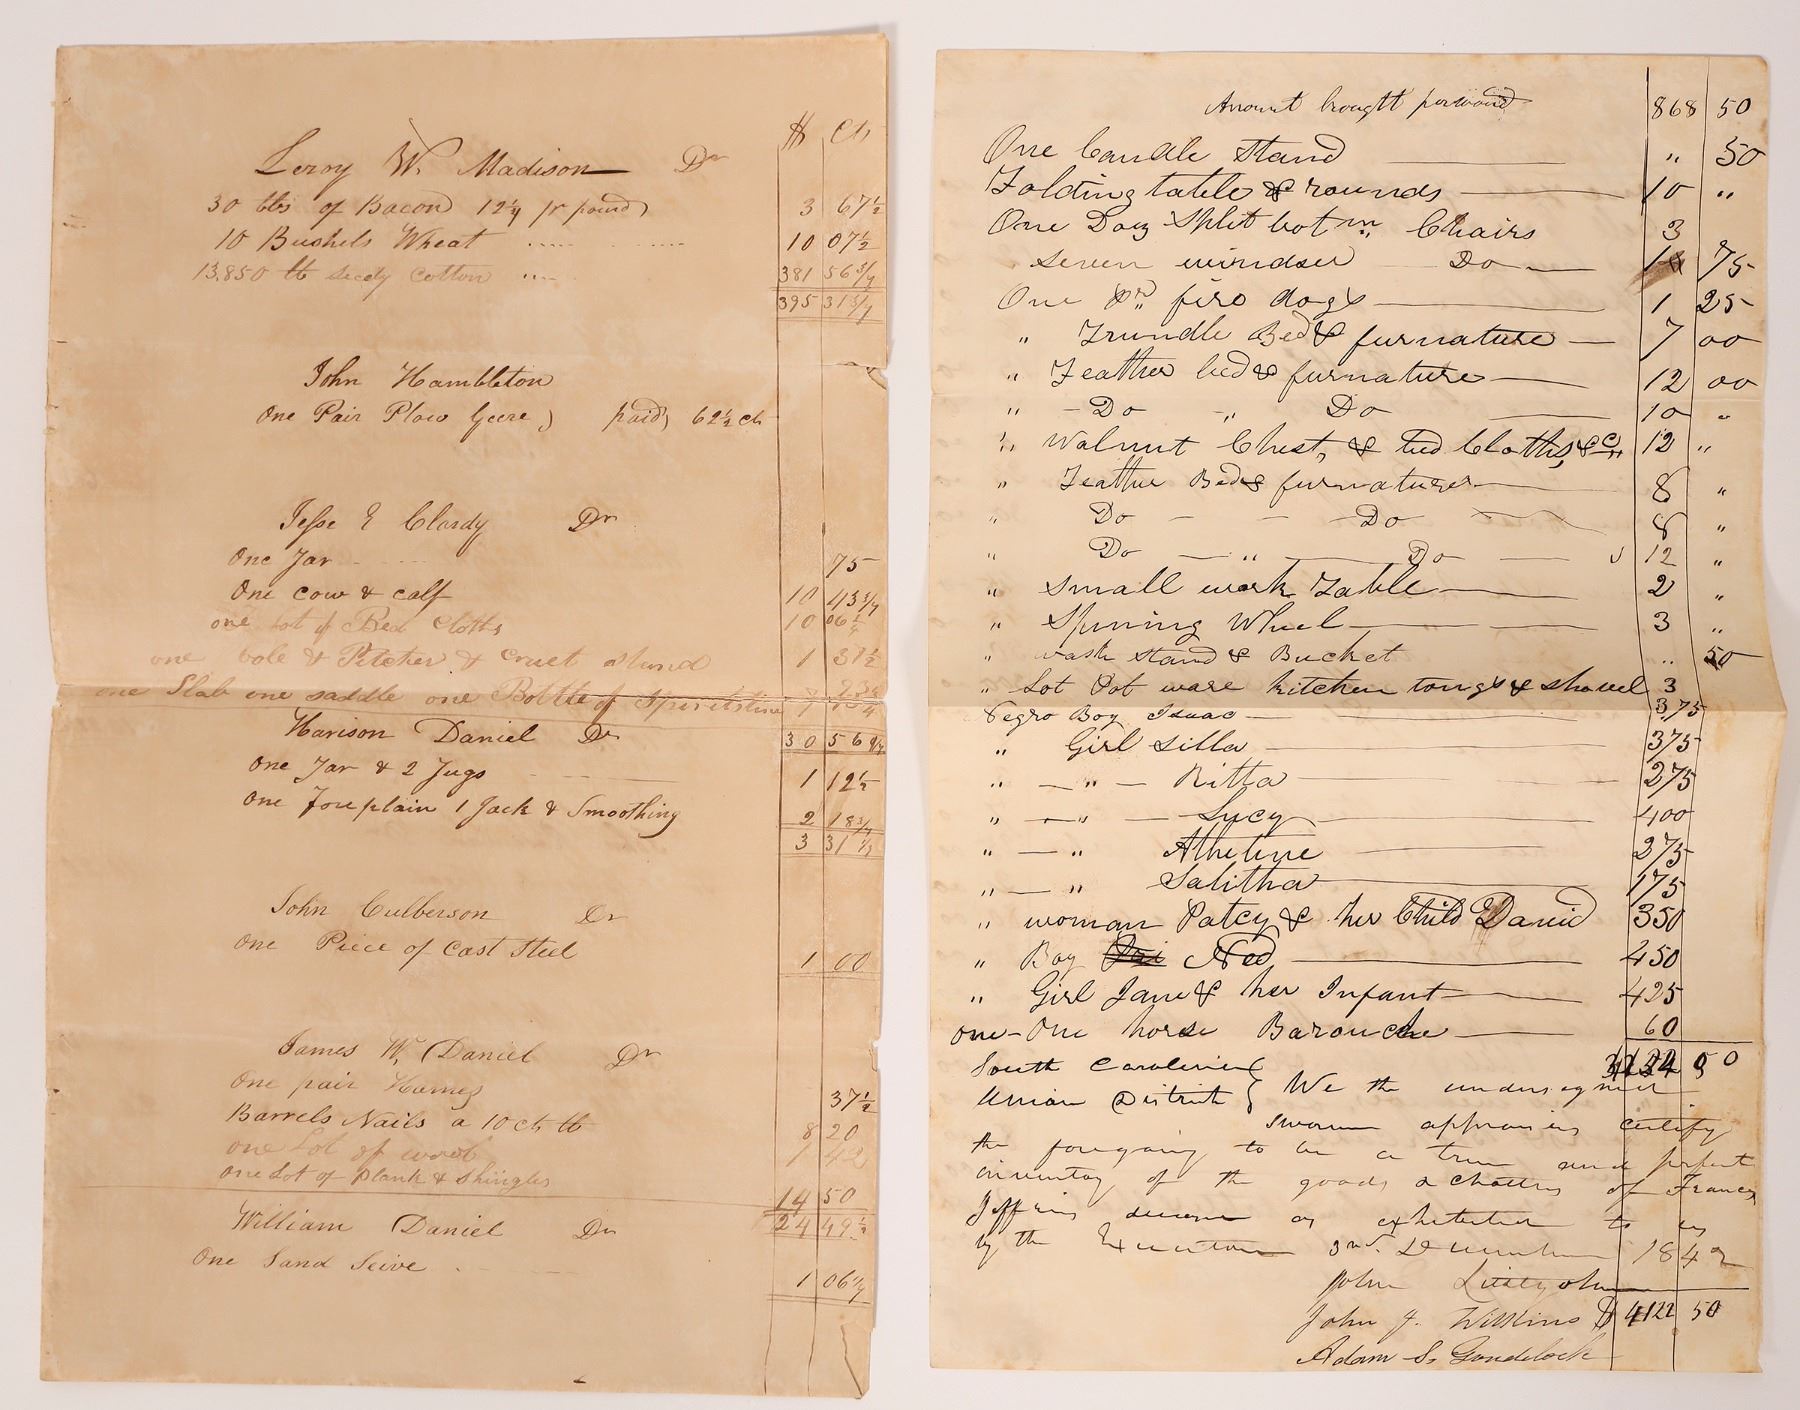 $ Cts
Leroy W. Madison Dr
30 lbs of Bacon 12¼ pr pound 3 67½
10 Bushels Wheat 10 07½
13,850 lb seedy cotton 381 56¾
395 31¾
John Hambleton
One Pair Plow Geere paid 62½ cts
Jesse E Clardy Dr
One Jar 75
One cow & calf 10 43¾
one Lot of Bed Cloths 10 06¼
one bole & Pitcher & cruet stand 1 37½
one Slab one saddle one Bottle of Spirits 7
Harison Daniel Dr 30 56
One Jar & 2 Jugs 1 12½
One Foreplain 1 Jack & Smoothing 2 18¾
3 31
John Culberson Dr
One Piece of Cast Steel 1 00
James W. Daniel Dr
One pair Hames 37½
Barrels Nails a 10 cts lb 8 20
one Lot of 1 42
one Lot of Plank & Shingles 14 50
24 49½
William Daniel Dr
One Sand Seive 1 06¼
Amount brought forward 868 50
One Candle Stand " 50
Folding table & rounds 10 "
One Doz Split botm Chairs 3
seven windser Do 75
One Pr fire dogs 1 25
" Trundle Bed & furnature 7 00
" Feather bed & furnature 12 00
" Do " Do 10 "
" Walnut Chest, & bed Cloths, &c 12 "
" Feather Bed & furnature 8 "
" Do Do 8 "
" Do " Do 12 "
" Small work Table 2 "
" Spinning Wheel 3 "
" wash stand & Bucket " 50
" Lot Pot ware kitchen tongs & shovel 3
Negro Boy Isaac 375
" Girl Silla 375
" " Ritta 275
" " Lucy 400
" " 275
" " Salitha 175
" woman Patcy & her Child David 350
" Boy Ned 450
" Girl Jane & her Infant 425
one One horse Barouche 60
South Carolina 50
Union District } We the undersigned
sworn appraisers certify
the foregoing to be a true and perfect
inventory of the goods & chattels of Frances
Jefferies deceased as exhibited to us
by the Executors 3rd December 1842
John Littlejohn
John J. Wilkins $ 4122 50
Adam S. Goudelock